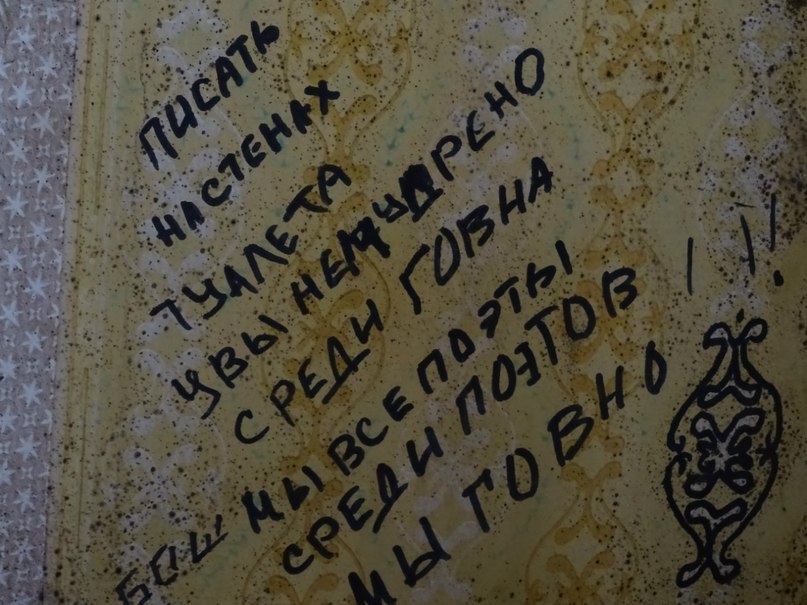 ПИСАТЬ
НАСТЕНАХ
ТУАЛЕТА
УВЫ НЕМУДРЕНО
СРЕДИ ГОВНА
МЫ ВСЕ ПОЭТЫ
СРЕДИ ПОЭТОВ !!!
МЫ ГОВНО